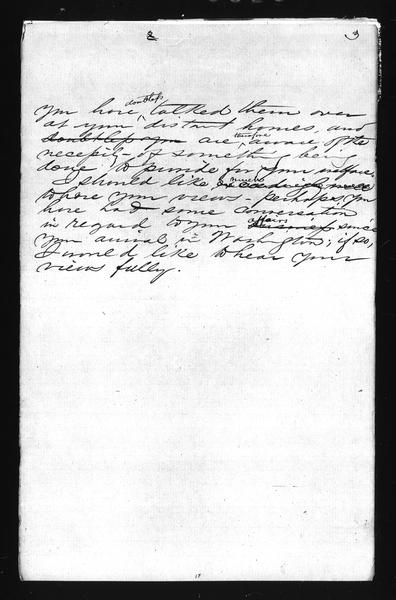 2 3
doubtless
you have talked them over
at your distant homes, and
therefore
doubtless you are aware of the
necessity of something being
done to provide for your welfare.
much
I should like exceedingly well
to have your views - perhaps, you
have had some conversation
affairs
in regard to your business since
your arrival in Washington; if so,
I would like to hear your
views fully.